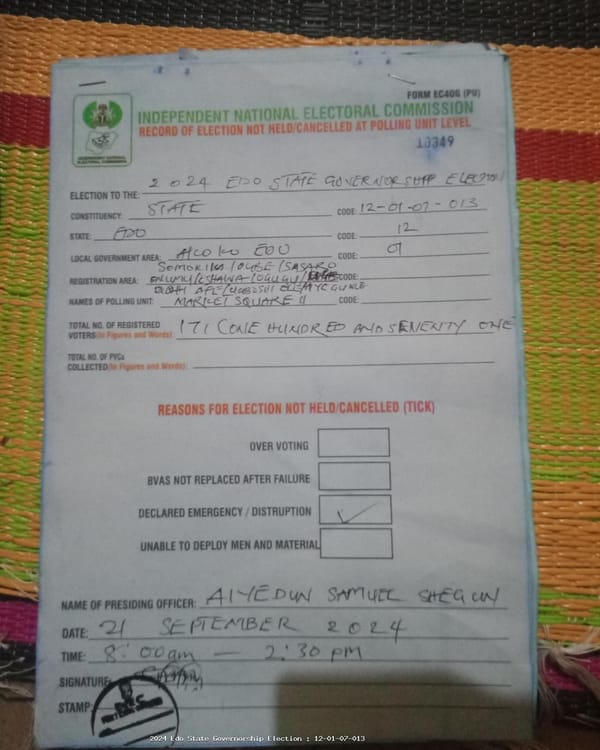 FORM EC40G (PU)
INDEPENDENT NATIONAL ELECTORAL COMMISSION
RECORD OF ELECTION NOT HELD/CANCELLED AT POLLING UNIT LEVEL
INDEPENDENT NATIONAL ELECTORAL COMMISSION
10349
ELECTION TO THE: 2024 EDO STATE GOVERNORSHIP ELECTION
CONSTITUENCY: STATE CODE: 12-01-07-013
STATE: EDO CODE: 12
LOCAL GOVERNMENT AREA: AKOKO EDO CODE: 01
SOMORIKA/OGBE/SASARO
REGISTRATION AREA: ONUMU/ESHAWA/OGUGU/ CODE:
NAMES OF POLLING UNIT: MARKET SQUARE II CODE:
TOTAL NO. OF REGISTERED
VOTERS(In Figures and Words): 171 (ONE HUNDRED AND SEVENTY ONE
TOTAL NO. OF PVCs
COLLECTED(In Figures and Words):
REASONS FOR ELECTION NOT HELD/CANCELLED (TICK)
OVER VOTING
BVAS NOT REPLACED AFTER FAILURE
DECLARED EMERGENCY / DISTRUPTION
UNABLE TO DEPLOY MEN AND MATERIAL
NAME OF PRESIDING OFFICER: AIYEDUN SAMUEL SHEGUN
DATE: 21 SEPTEMBER 2024
TIME: 8:00am - 2:30 PM
SIGNATURE:
STAMP:
2024 Edo State Governorship Election : 12-01-07-013